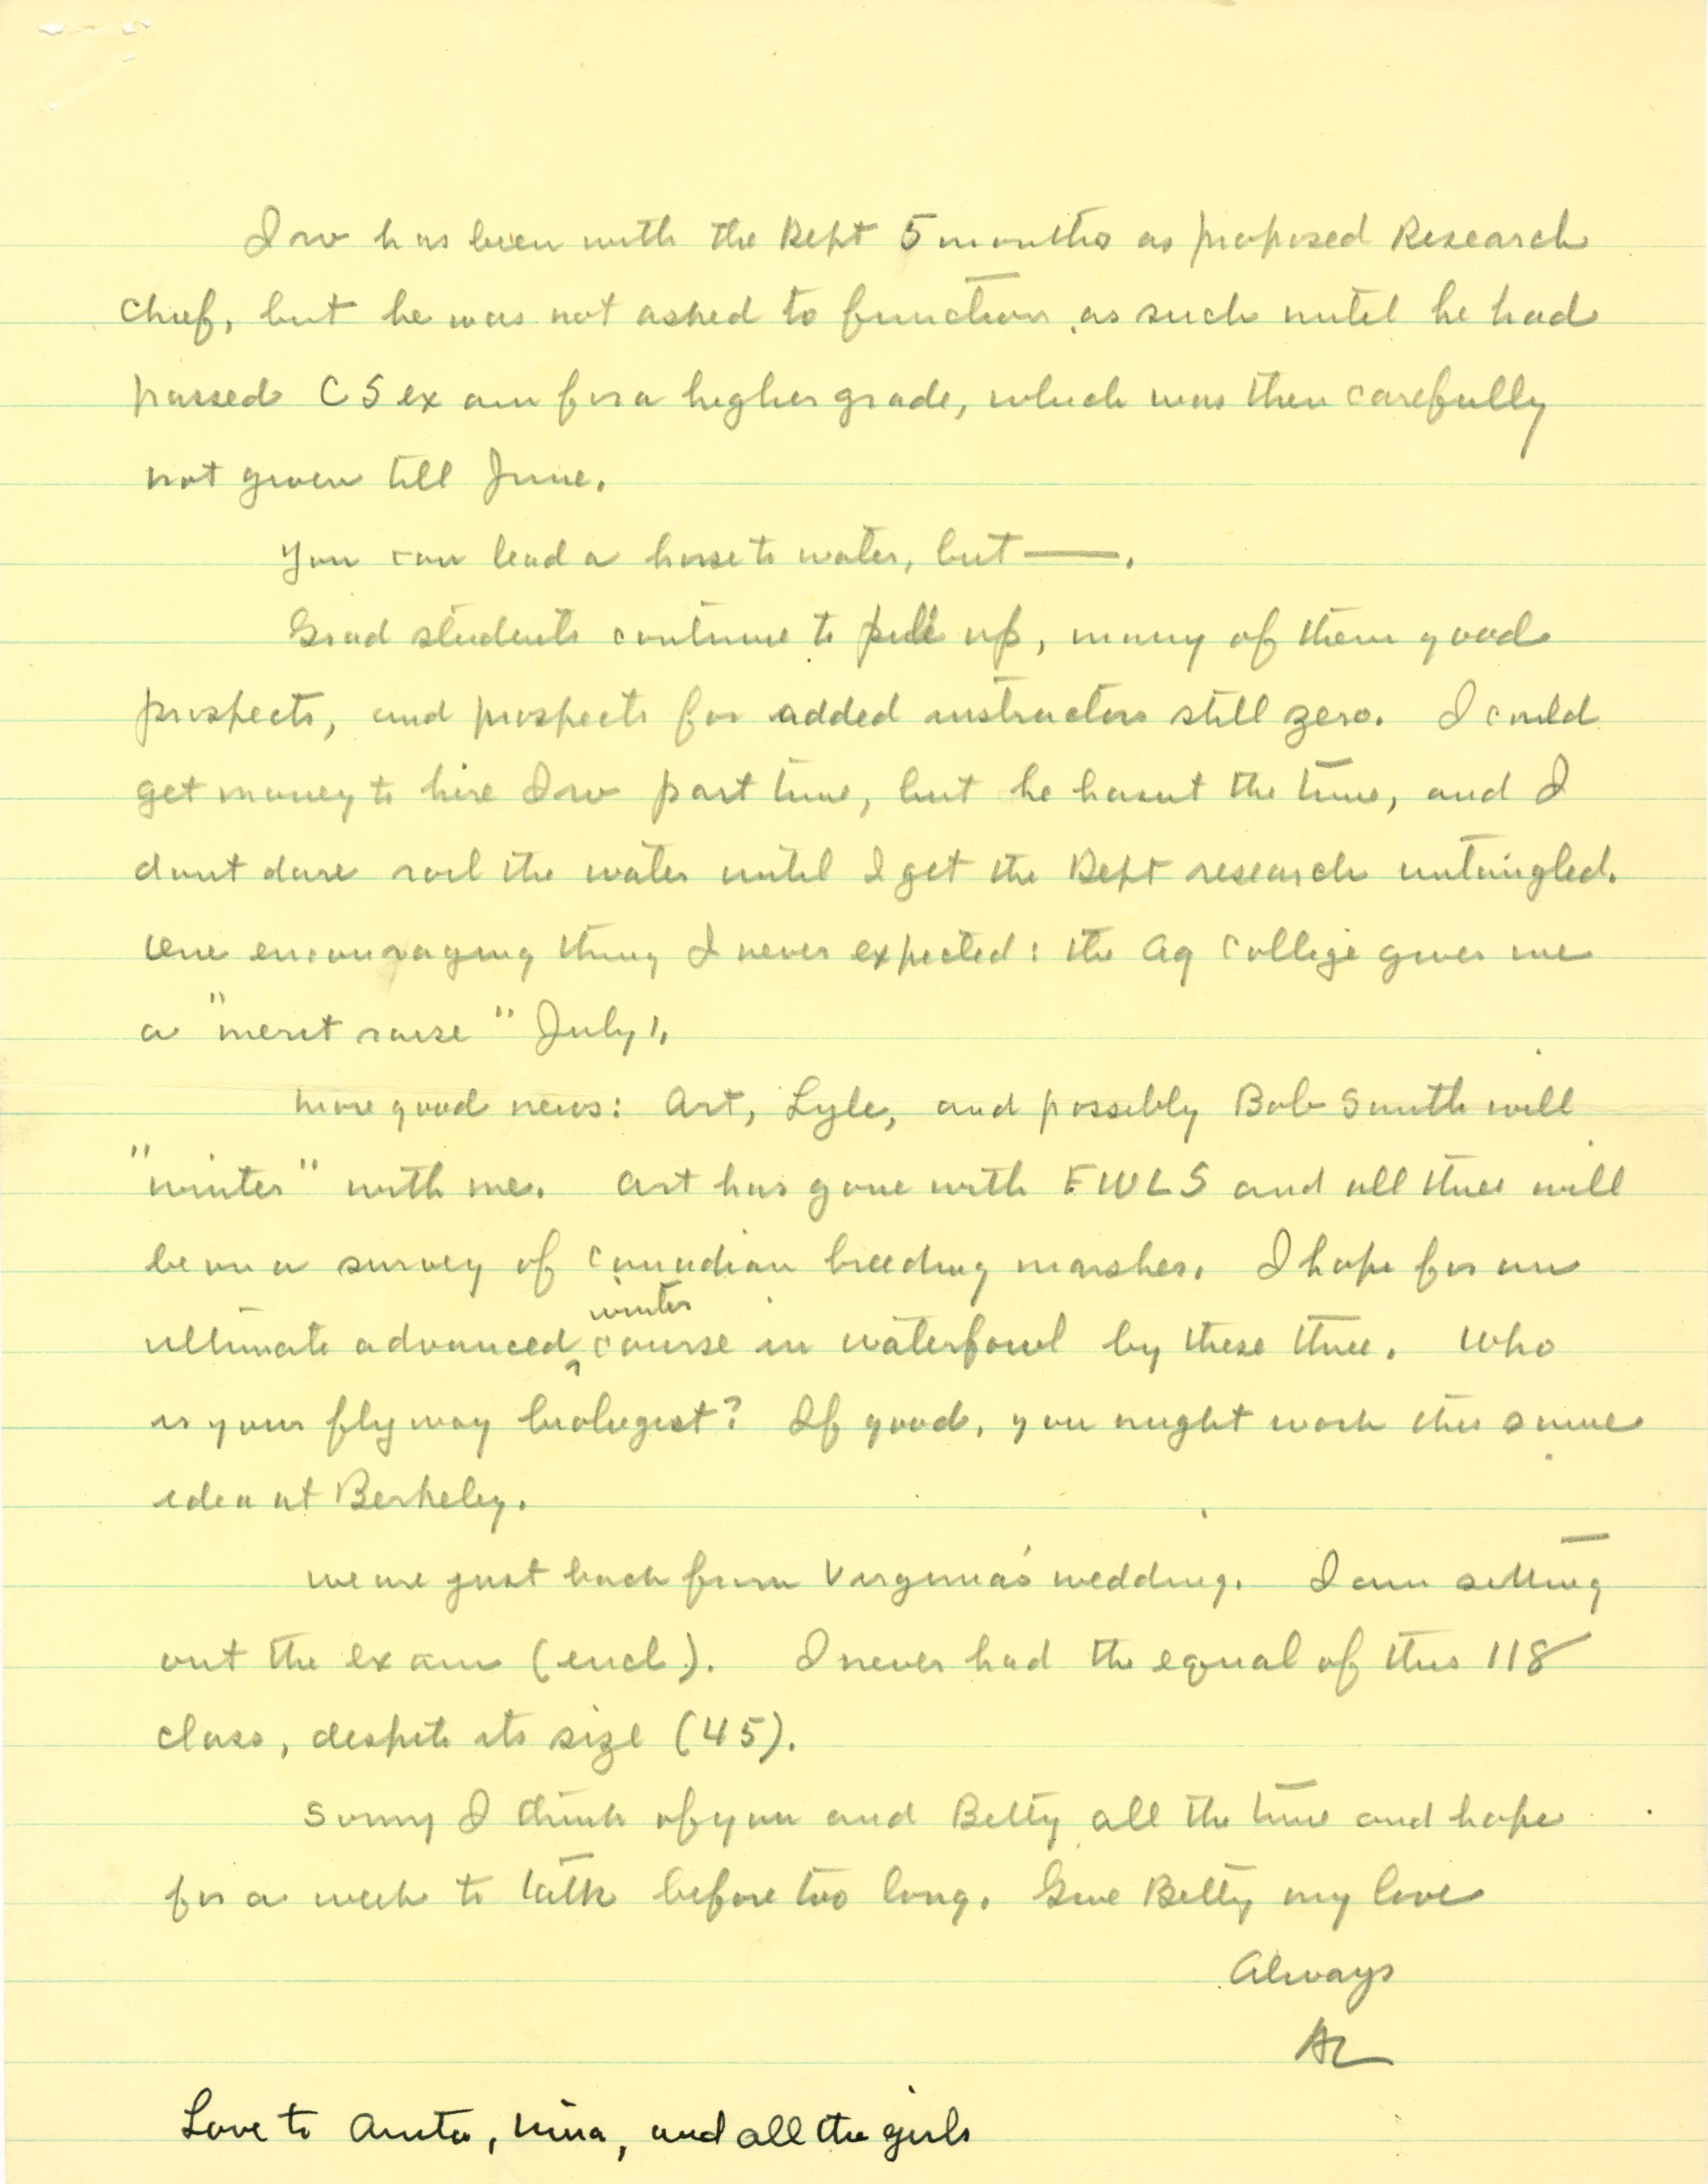 Irv has been with the Dept 5 months as proposed Research
Chief, but he was not asked to function as such until he had
passed CS exam for a higher grade, which was then carefully
not given till June.
You can lead a horse to water, but —.
Grad students continue to pile up, many of them good
prospects, and prospects for added instructors still zero. I could
get money to hire Irv part time, but he hasnt the time, and I
dont dare roil the water until I get the Dept research untangled.
One encouraging thing I never expected: the Ag College gives me
a "merit raise" July 1.
More good news: Art, Lyle, and possibly Bob Smith will
"winter" with me. Art has gone with FWLS and all three will
be on a survey of Canadian breeding marshes. I hope for an
winter
ultimate advanced course in waterfowl by these three. Who
is your flyway biologist? If good, you might work this same
idea at Berkeley.
We are just back from Virginia's wedding. I am sitting
out the exam (encl.). I never had the equal of this 118
class, despite its size (45).
Sonny I think of you and Betty all the time and hope
for a week to talk before too long. Give Betty my love
Always
AL
Love to Anita, Nina, and all the girls